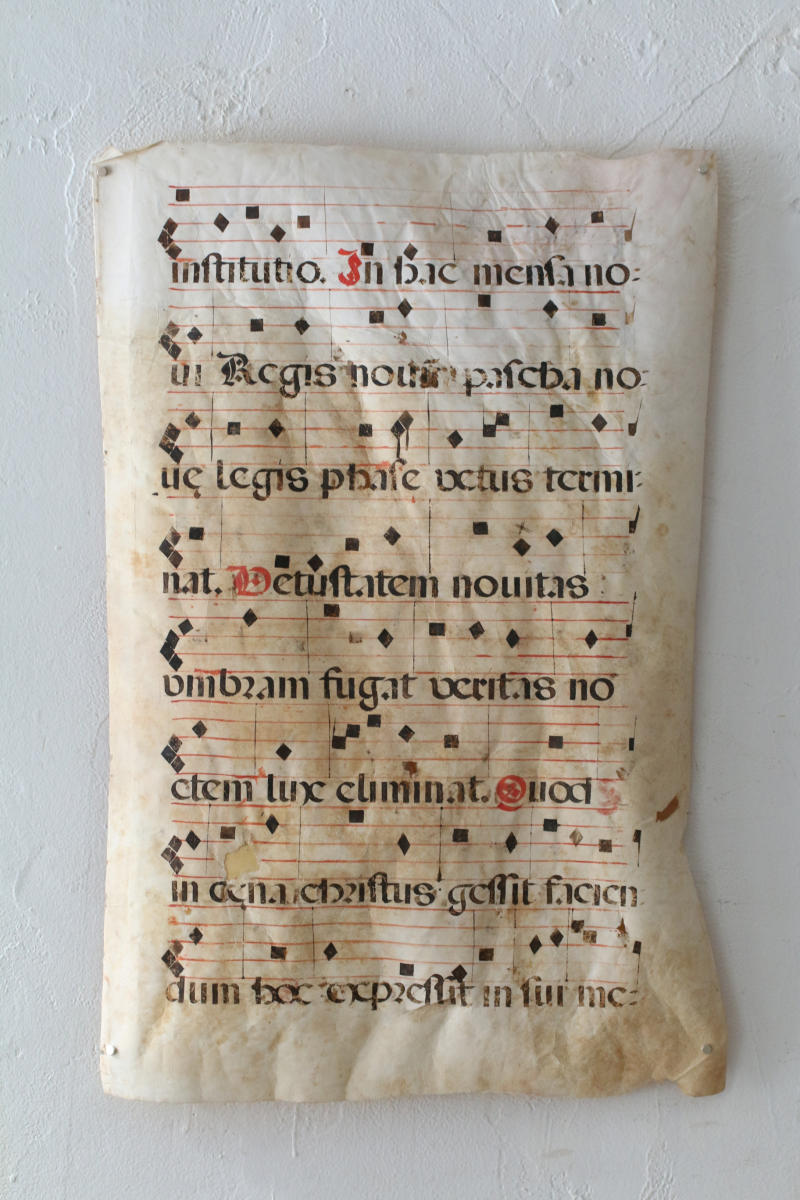 institutio. In hac mensa no:
ui Regis noui pascha no:
uę legis phase vetus termi:
nat. Vetustatem nouitas
vmbram fugat veritas no
ctem lux eliminat. Quod
in cęna christus gessit facien
dum hoc expressit in sui me: